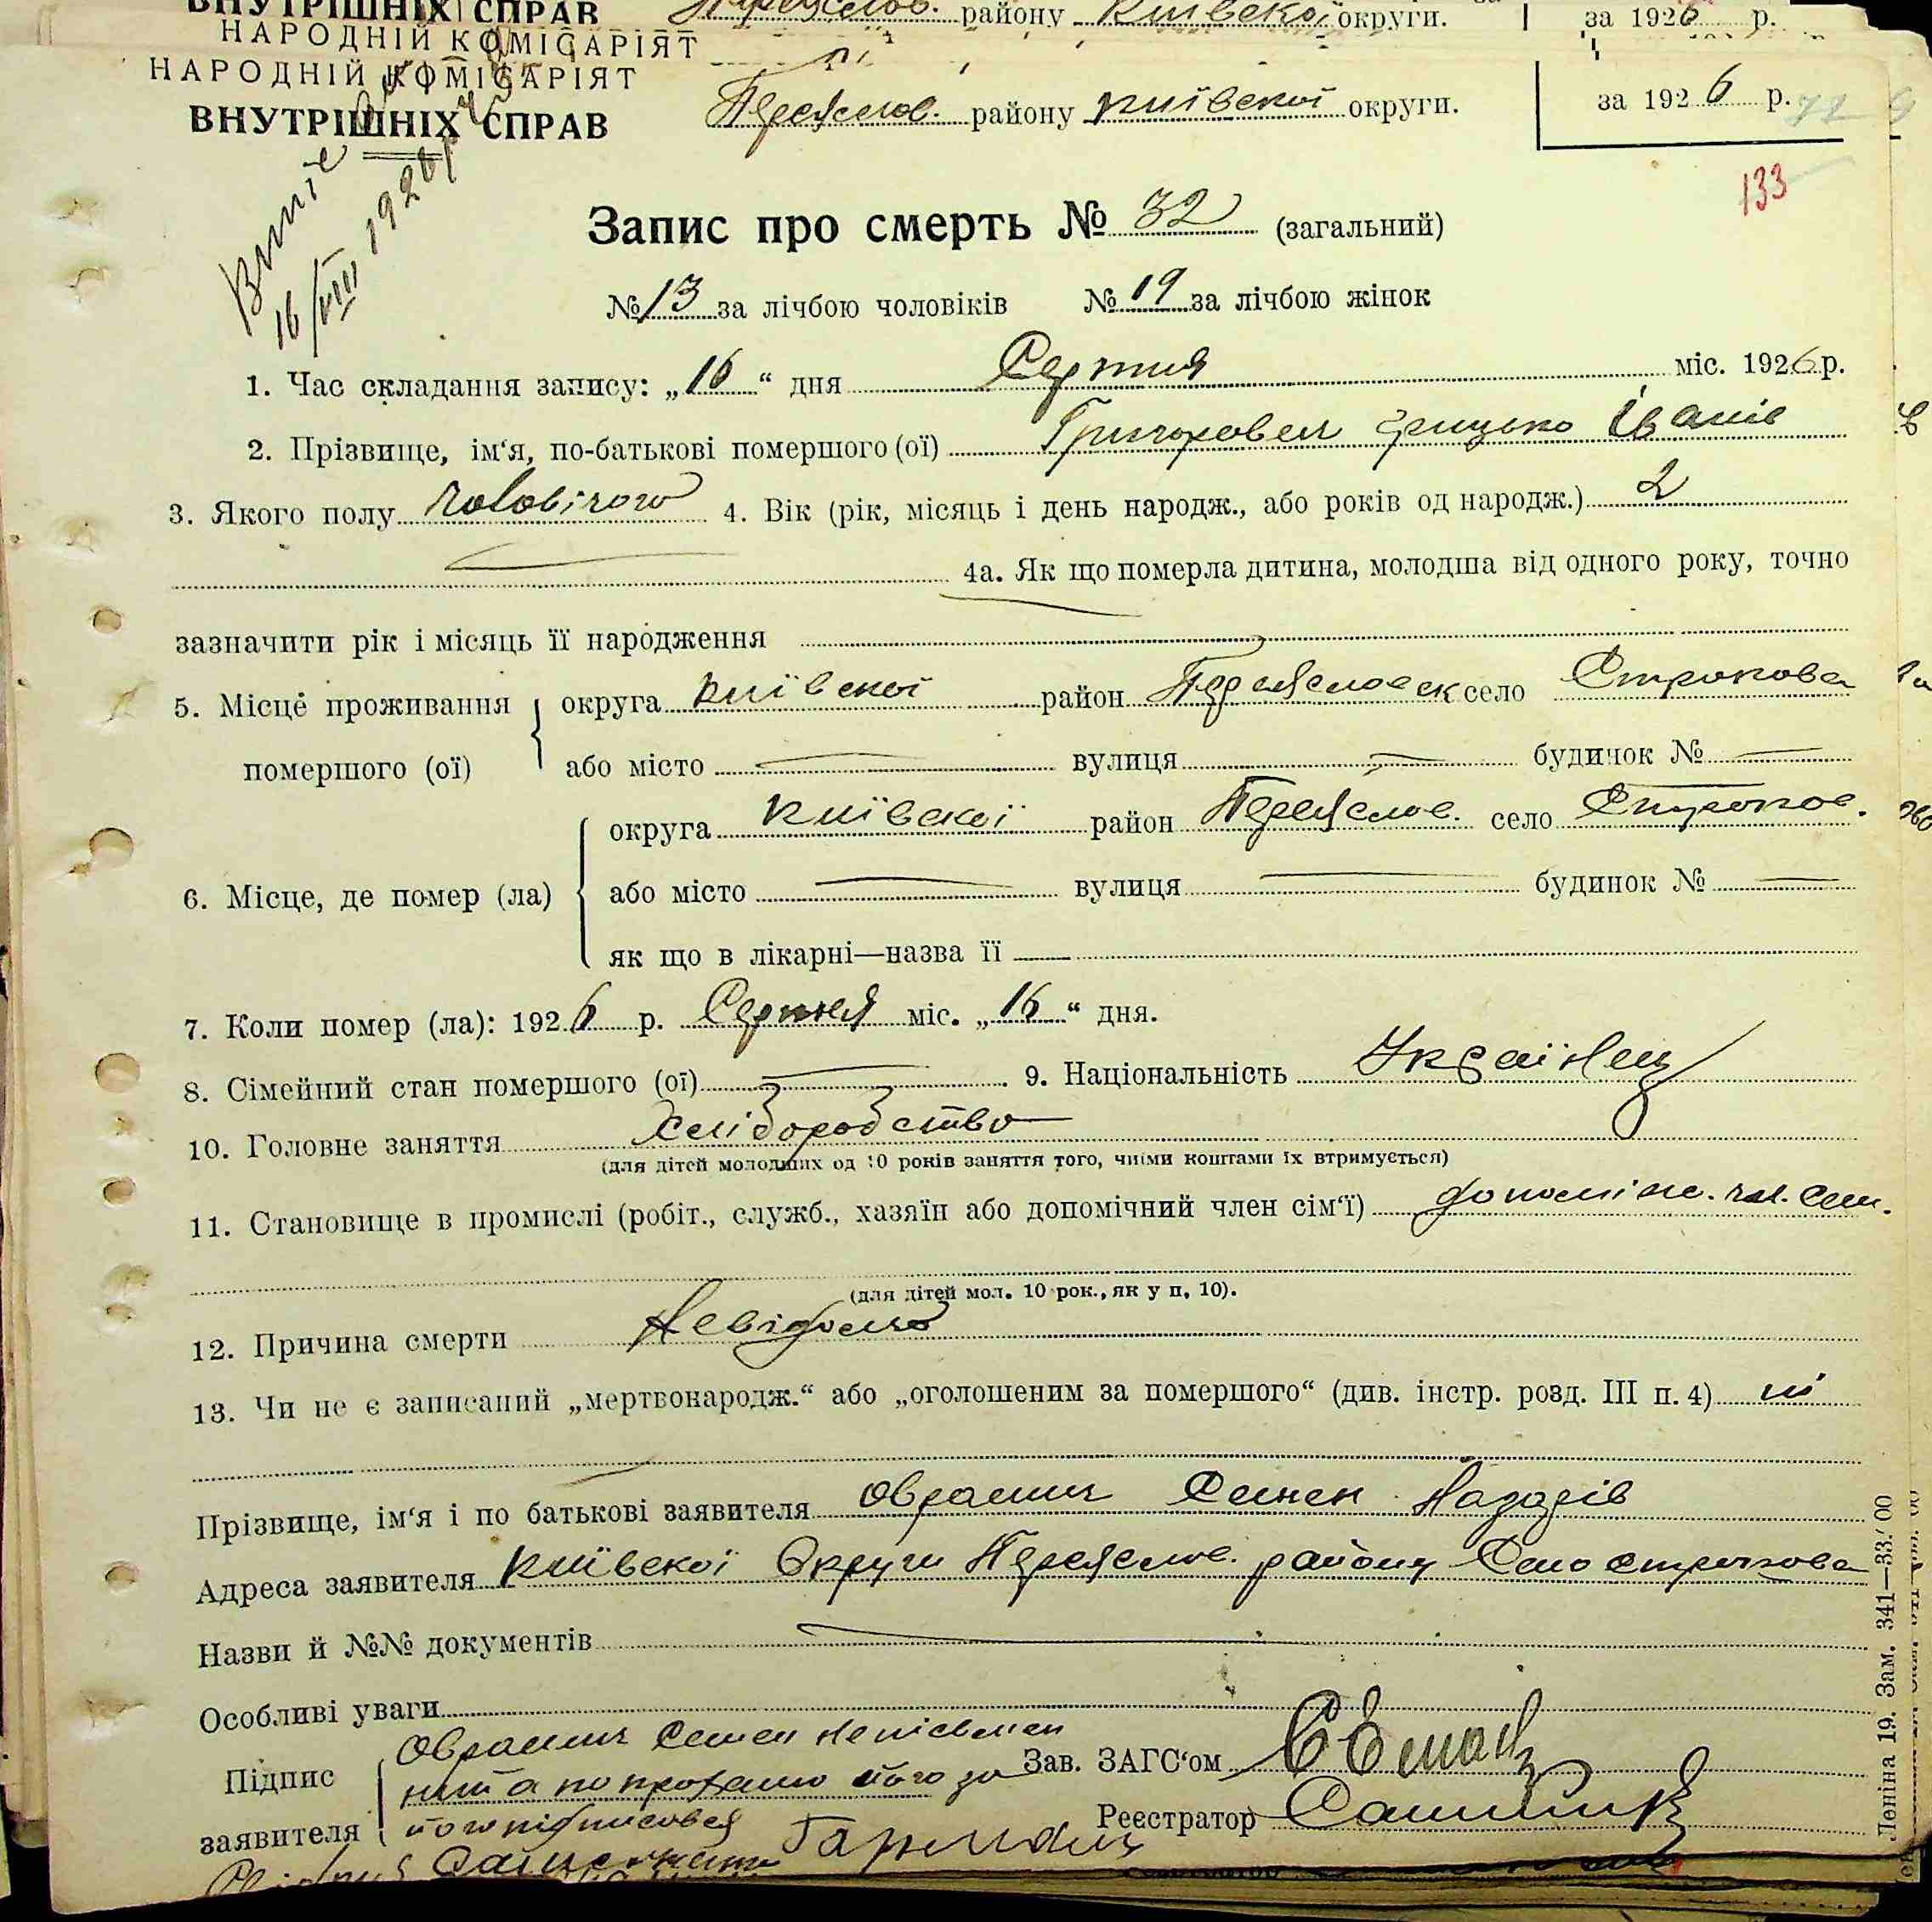 ВНУТРІШНІХ СПРАВ району Київської округи. за 1926 р.
НАРОДНІЙ КОМІСАРІЯТ
НАРОДНІЙ КОМІСАРІЯТ
ВНУТРІШНІХ СПРАВ Переяслов. району Київської округи. за 1926 р.
133
16/VIII 1926р
Запис про смерть № 32 (загальний)
№ 13 за лічбою чоловіків № 19 за лічбою жінок
1. Час складання запису: „16“ дня Серпня міс. 1926 р.
2. Прізвище, ім‘я, по-батькові помершого (ої) Грицько Іванів
3. Якого полу чоловічого 4. Вік (рік, місяць і день народж., або років од народж.) 2
4а. Як що померла дитина, молодша від одного року, точно
зазначити рік і місяць її народження
5. Місце проживання помершого (ої) округа Київської район Переясловськ село Строкова
або місто — вулиця — будинок № —
6. Місце, де помер (ла) округа Київської район Переяслов. село Строков.
або місто — вулиця — будинок № —
як що в лікарні—назва її —
7. Коли помер (ла): 1926 р. Серпня міс. „16“ дня.
8. Сімейний стан помершого (ої) — 9. Національність Українець
10. Головне заняття Хліборобство
(для дітей молодших од 10 років заняття того, чиїми коштами їх втримується)
11. Становище в промислі (робіт., служб., хазяїн або допомічний член сім‘ї) допоміж. чл. сем.
(для дітей мол. 10 рок., як у п. 10).
12. Причина смерти Невідомо
13. Чи не є записаний „мертвонародж.“ або „оголошеним за помершого“ (див. інстр. розд. III п. 4) ні
Прізвище, ім‘я і по батькові заявителя Семен Назарів
Адреса заявителя Київської Округи Переяслов. району Село Строкова
Назви й №№ документів —
Особливі уваги
Підпис заявителя Семен неписьмен
ний а по проханню його за
його підписовся
Зав. ЗАГС‘ом
Реєстратор
Леніна 19. Зам. 341—33.’00